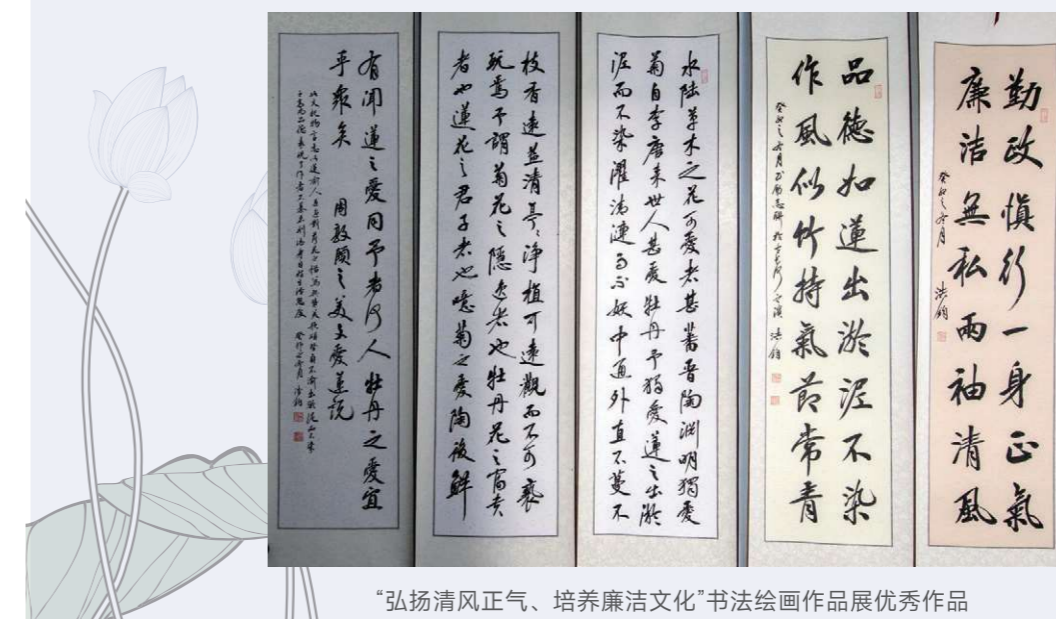 勤政慎行一身正氣
廉洁無私兩袖清風
癸卯之冬月
品德如蓮出淤泥不染
作風似竹持氣節常青
癸卯之冬月
水陸草木之花可愛者甚蕃晋陶淵明獨愛
菊自李唐来世人甚愛牡丹予獨愛蓮之出淤
泥而不染濯清漣而不妖中通外直不蔓不
枝香遠益清亭亭净植可遠觀而不可褻
玩焉予謂菊花之隱逸者也牡丹花之富贵
者也蓮花之君子者也噫菊之愛陶後鮮
有闻蓮之愛同予者何人牡丹之愛宜
乎衆矣 周敦頤之美文愛蓮说
“弘扬清风正气、培养廉洁文化”书法绘画作品展优秀作品